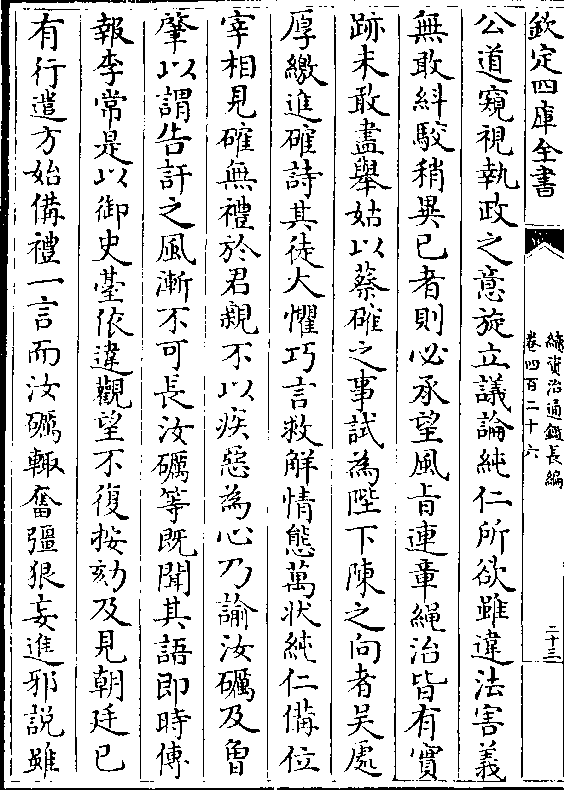 欽定四庫全書
續資治通鑑長編
卷四百二十六
二十三
公道窺視執政之意旋立議論純仁所欲雖違法害義
無敢糾駁稍異已者則必承望風旨連章繩治皆有實
跡未敢盡舉姑以蔡確之事試為陛下陳之向者吳處
厚繳進確詩其徒大懼巧言救解情態萬狀純仁備位
宰相見確無禮於君親不以疾惡為心乃諭汝礪及曾
肇以謂告訐之風漸不可長汝礪等既聞其語即時傳
報李常是以御史臺依違觀望不復按劾及見朝廷已
有行遣方始備禮一言而汝礪輒奮彊狠妄進邪說雖